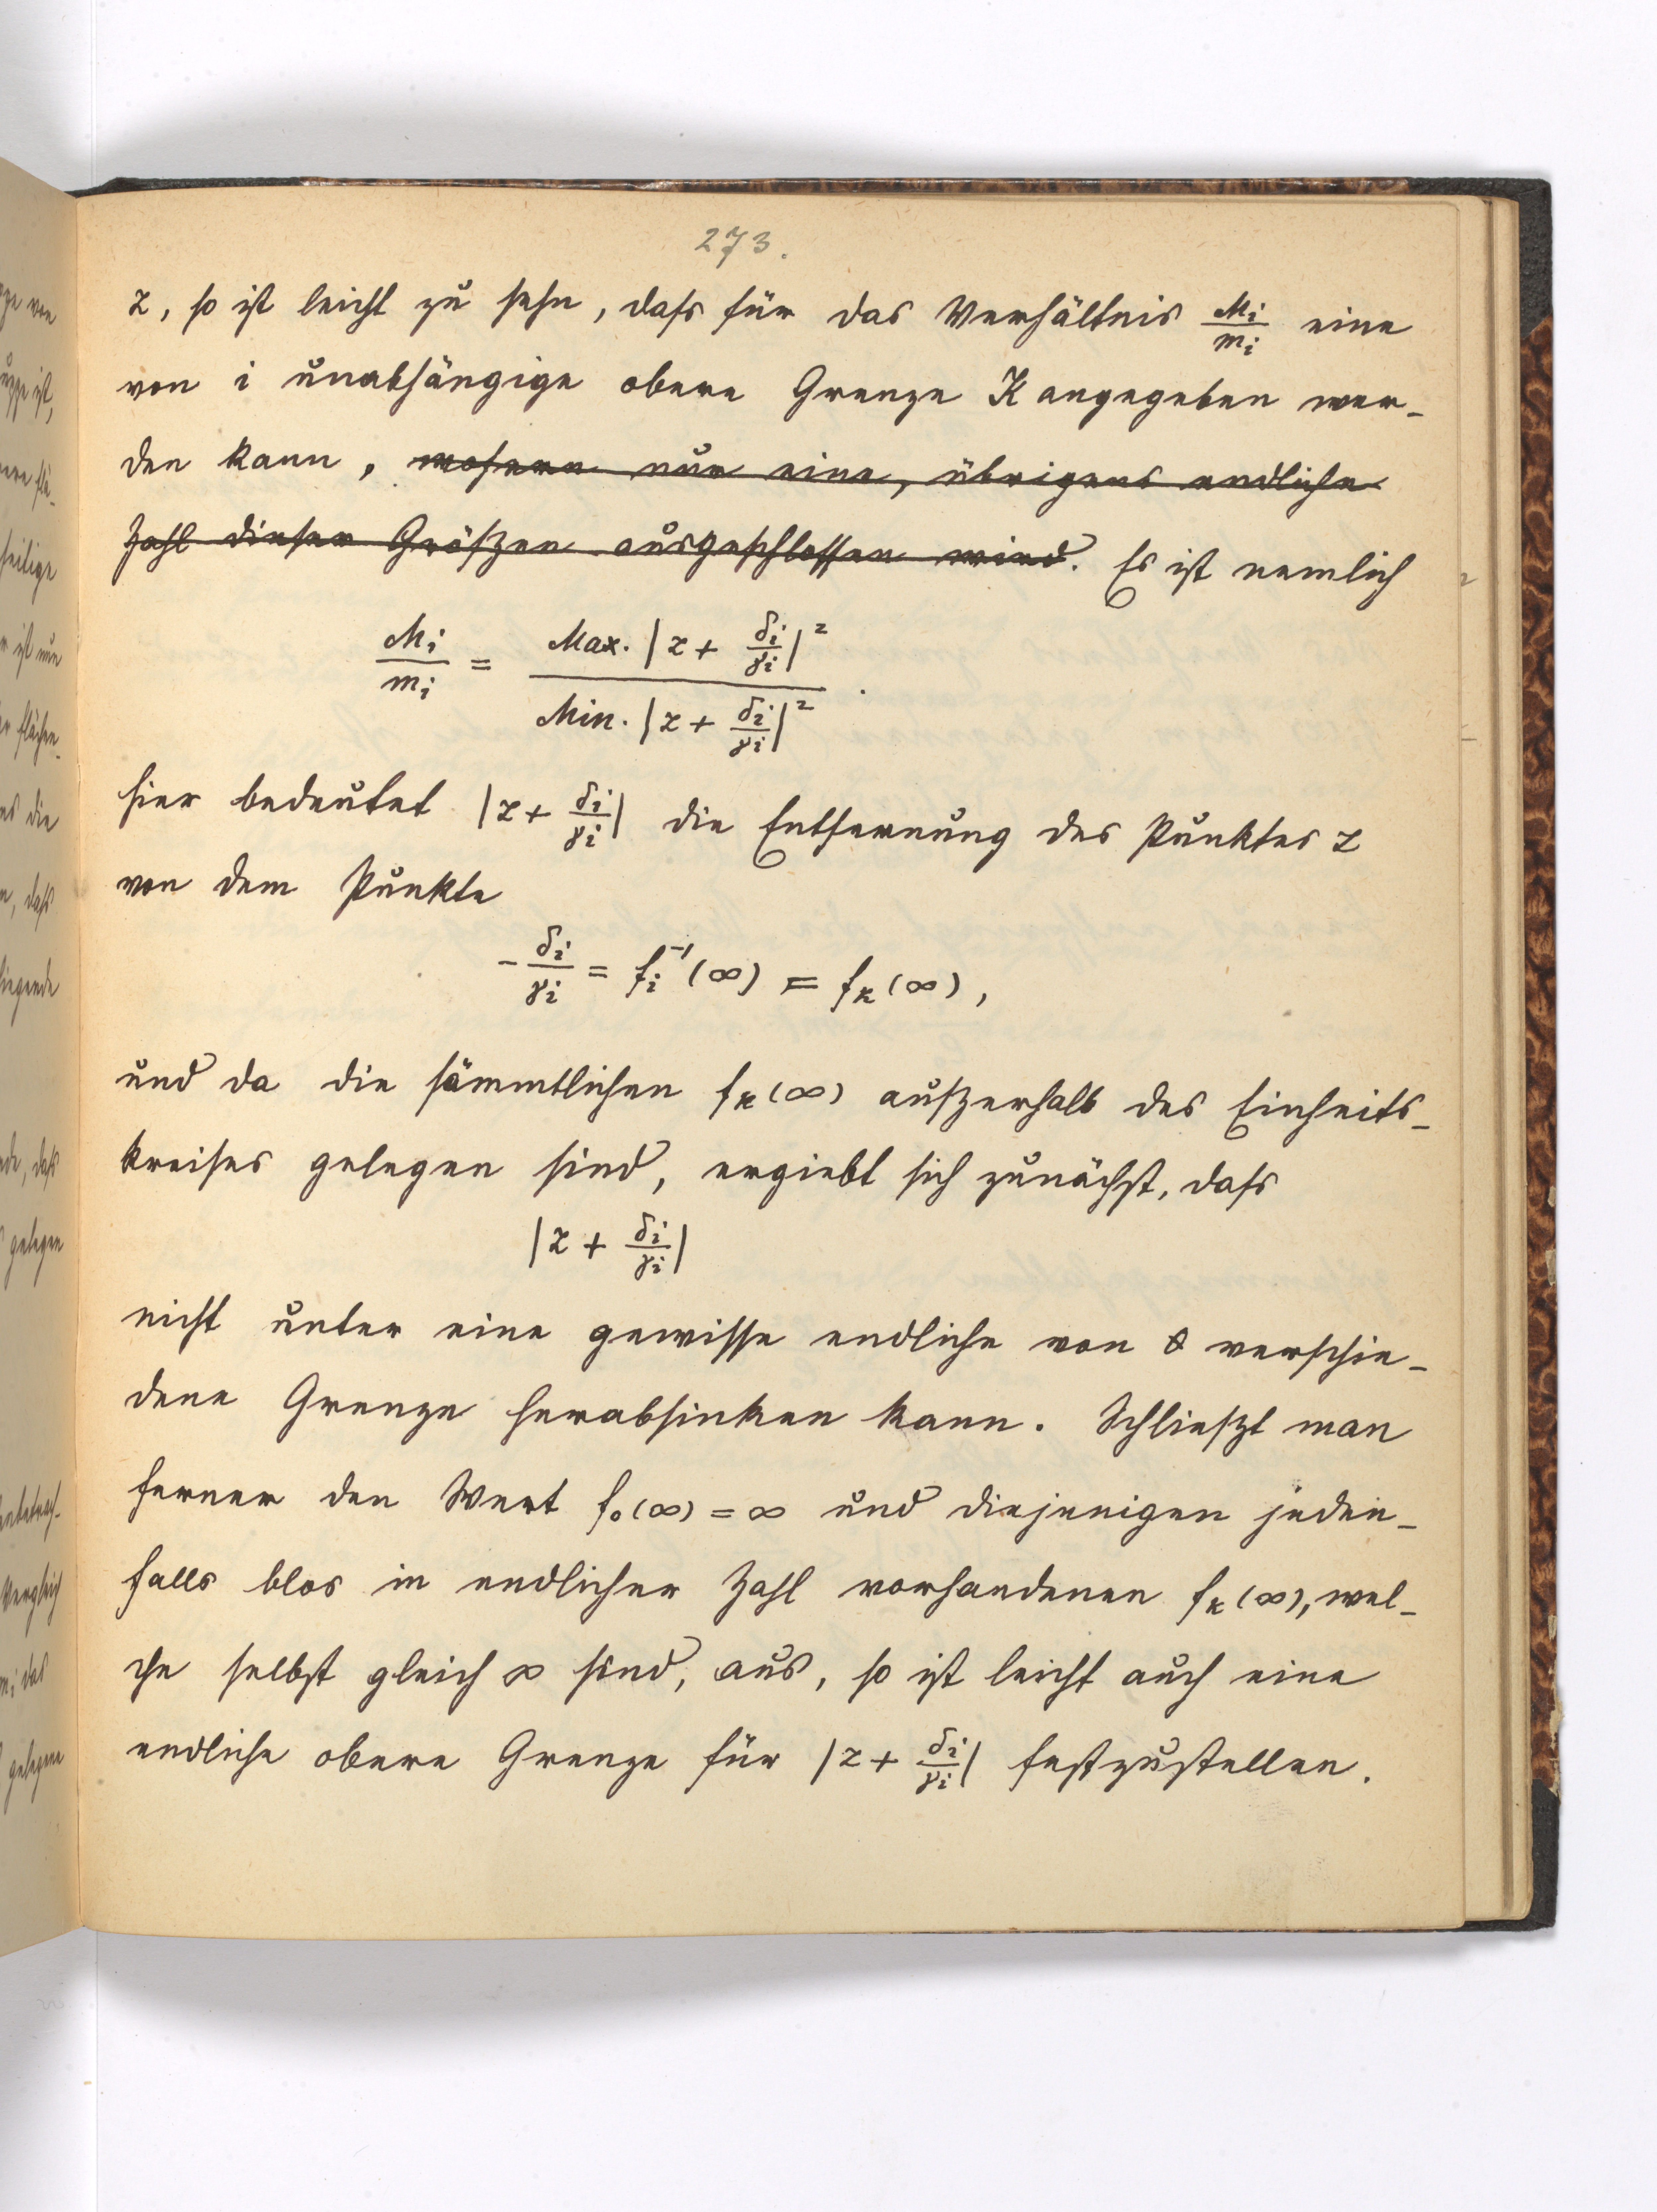 273.
z, so ist leicht zu sehn, dass für das Verhältnis M_i/m_i eine
von i unabhängige obere Grenze K angegeben wer-
den kann, wofern nur eine, übrigens endliche
Zahl dieser Größzen ausgeschlossen wird. Es ist nemlich
M_i/m_i = Max. |z + δ_i/γ_i|² / Min. |z + δ_i/γ_i|² .
hier bedeutet |z + δ_i/γ_i| die Entfernung des Punktes z
von dem Punkte
- δ_i/γ_i = f_i^{-1}(∞) = f_k(∞),
und da die sämmtlichen f_k(∞) auszerhalb des Einheits-
kreises gelegen sind, ergiebt sich zunächst, dass
|z + δ_i/γ_i|
nicht unter eine gewisse endliche von 0 verschie-
dene Grenze herabsinken kann. Schlieszt man
ferner den Wert f_0(∞) = ∞ und diejenigen jeden-
falls blos in endlicher Zahl vorhandenen f_k(∞), wel-
che selbst gleich ∞ sind, aus, so ist leicht auch eine
endliche obere Grenze für |z + δ_i/γ_i| festzustellen.